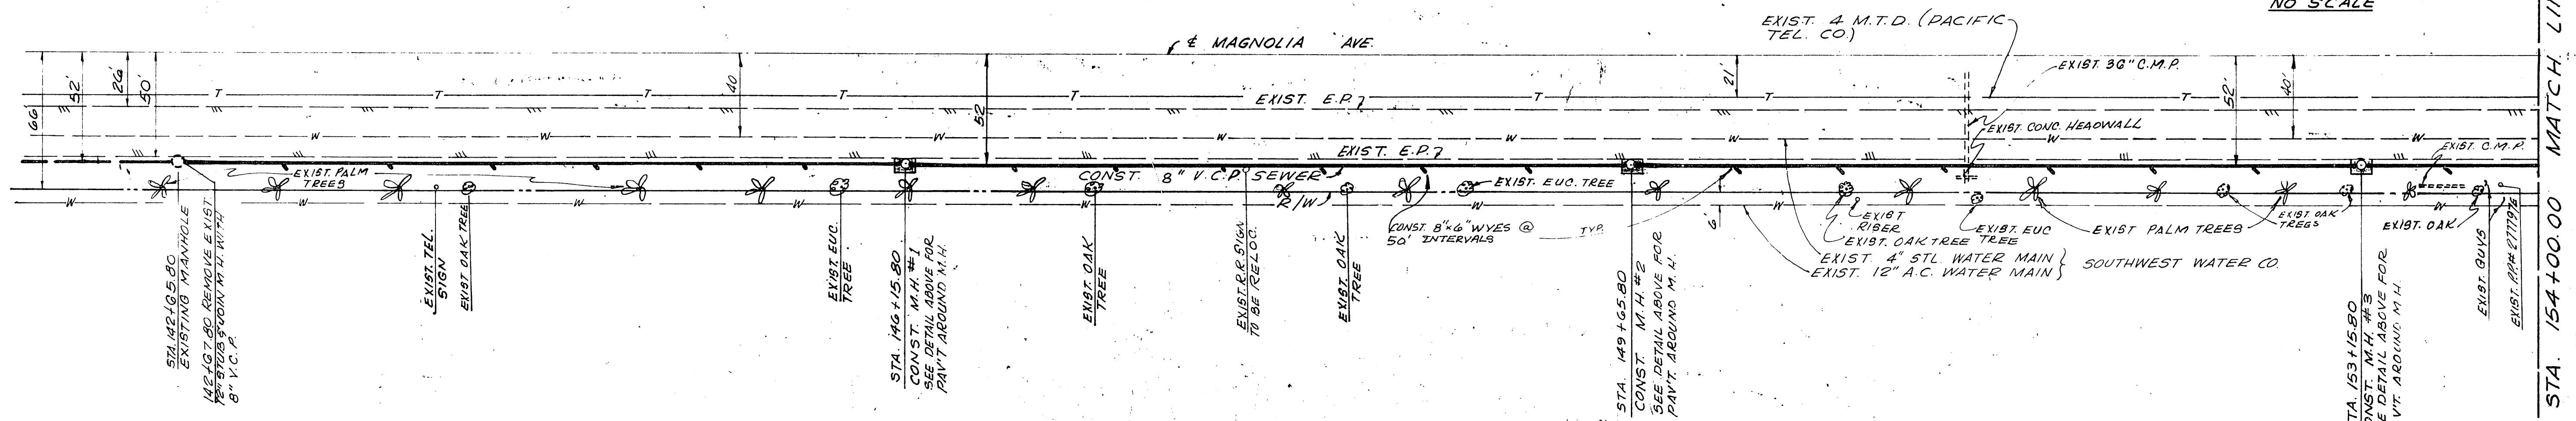 NO SCALE
EXIST. 4 M.T.D. (PACIFIC
TEL. CO.)
℄ MAGNOLIA AVE.
66'
52'
26'
50'
40
52
21'
52'
40'
EXIST. 36" C.M.P.
T T T T T T T T
EXIST. E.P.
W W W W W W W W
EXIST. CONC. HEADWALL
EXIST. E.P.
EXIST. C.M.P.
CONST. 8" V.C.P. SEWER
EXIST. PALM
TREES
EXIST. EUC. TREE
R/W
W W W W W W W W
CONST. 8"x6" WYES @
50' INTERVALS
TYP.
6'
EXIST
RISER
EXIST. OAK TREE
EXIST. EUC
TREE
EXIST PALM TREES
EXIST. OAK
TREES
EXIST. OAK
EXIST. 4" STL. WATER MAIN
EXIST. 12" A.C. WATER MAIN
SOUTHWEST WATER CO.
STA. 142+65.80
EXISTING MANHOLE
142+67.80 REMOVE EXIST.
12" STUB & JOIN M.H. WITH
8" V.C.P.
EXIST. TEL.
SIGN
EXIST OAK TREE
EXIST. EUC.
TREE
STA. 146+15.80
CONST. M.H. #1
SEE DETAIL ABOVE FOR
PAV'T AROUND M.H.
EXIST. OAK
TREE
EXIST. R.R. SIGN
TO BE RELOC.
EXIST. OAK
TREE
STA. 149+65.80
CONST. M.H. #2
SEE DETAIL ABOVE FOR
PAV'T. AROUND M.H.
TA. 153+15.80
ONST. M.H. #3
E DETAIL ABOVE FOR
V'T. AROUND M.H.
EXIST. GUYS
EXIST. P.P.# 277797E
STA. 154+00.00 MATCH LIN